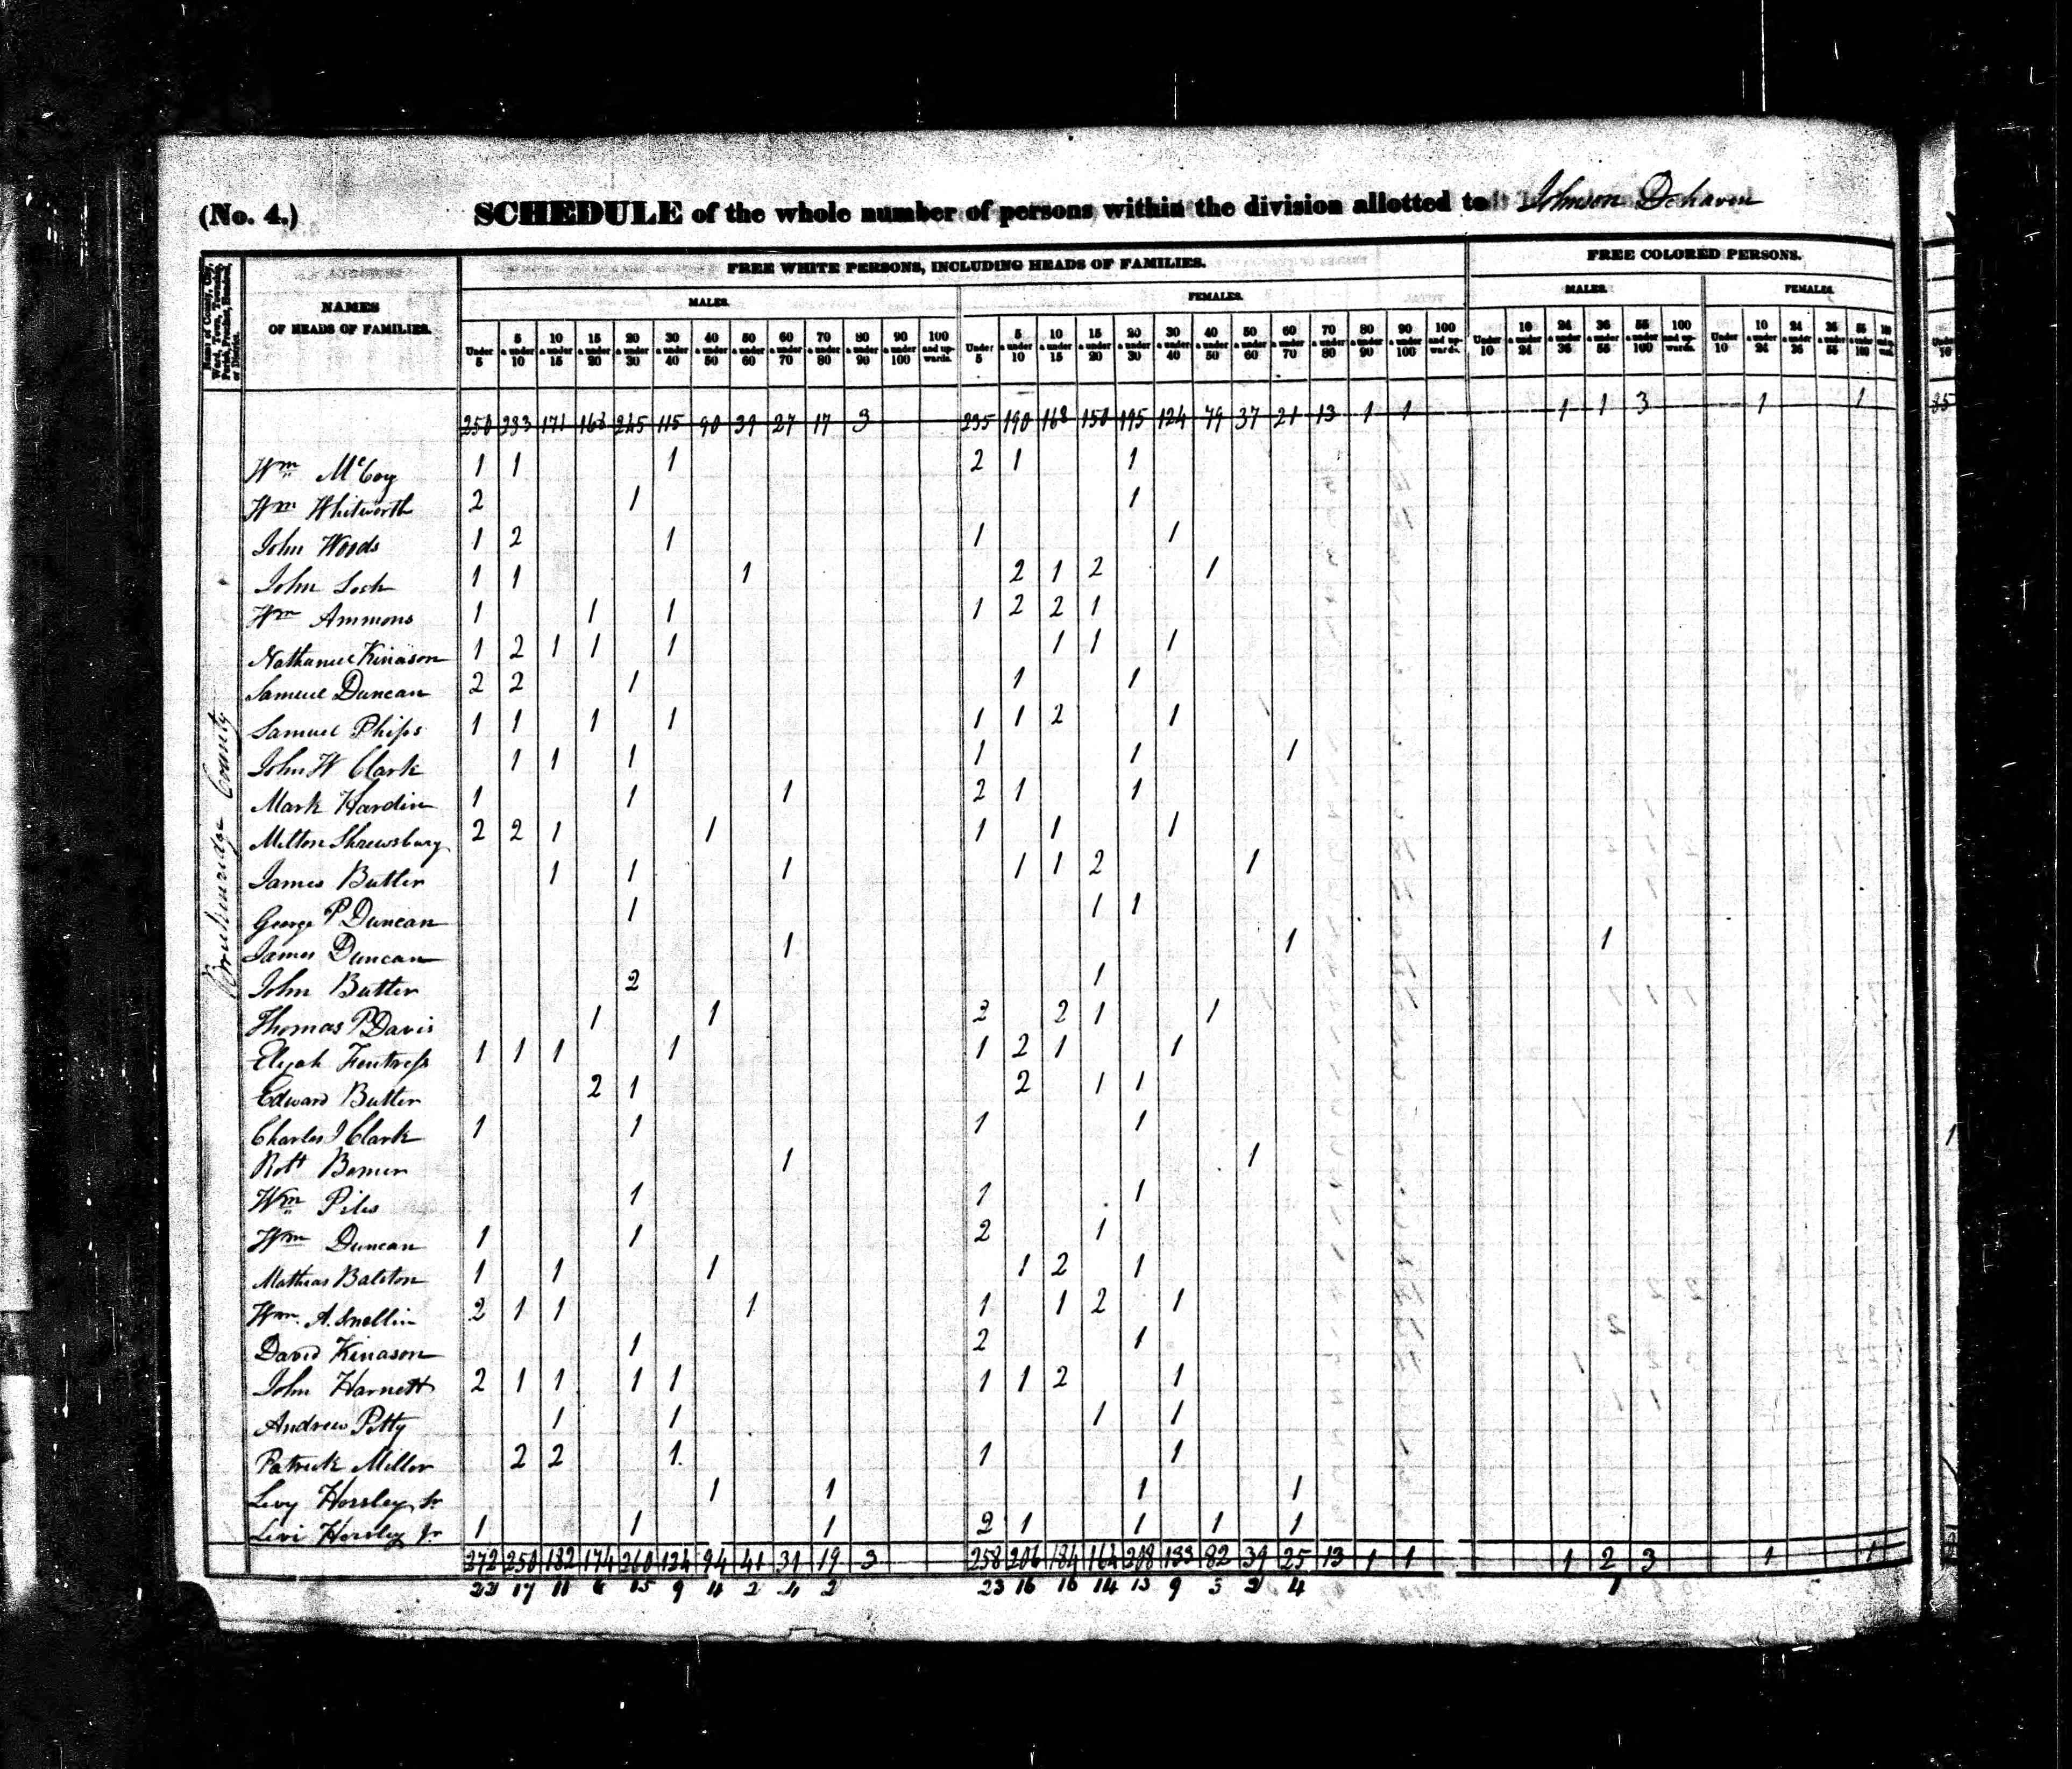 (No. 4.) SCHEDULE of the whole number of persons within the division allotted to Johnson Dehaven
FREE WHITE PERSONS, INCLUDING HEADS OF FAMILIES. FREE COLORED PERSONS.
NAMES OF HEADS OF FAMILIES. MALES. FEMALES. MALES. FEMALES.
Under 5 | 5 & under 10 | 10 & under 15 | 15 & under 20 | 20 & under 30 | 30 & under 40 | 40 & under 50 | 50 & under 60 | 60 & under 70 | 70 & under 80 | 80 & under 90 | 90 & under 100 | 100 and upwards. | Under 5 | 5 & under 10 | 10 & under 15 | 15 & under 20 | 20 & under 30 | 30 & under 40 | 40 & under 50 | 50 & under 60 | 60 & under 70 | 70 & under 80 | 80 & under 90 | 90 & under 100 | 100 and upwards. | Under 10 | 10 & under 24 | 24 & under 36 | 36 & under 55 | 55 & under 100 | 100 and upwards. | Under 10 | 10 & under 24 | 24 & under 36 | 36 & under 55 | 55 & under 100 | 100 and upwd.
250 233 171 168 245 115 90 39 27 17 3 235 190 168 150 195 124 79 37 21 13 1 1 1 1 3 1 1
Wm McCoy 1 1 1 2 1 1
Wm Whitworth 2 1 1
John Woods 1 2 1 1 1
John 1 1 1 2 1 2 1
Wm Ammons 1 1 1 1 2 2 1
Nathaniel Kinason 1 2 1 1 1 1 1 1
Samuel Duncan 2 2 1 1 1
Samuel Phips 1 1 1 1 1 1 2 1
John W Clark 1 1 1 1 1 1
Mark Hardin 1 1 1 2 1 1
Milton Shrewsbury 2 2 1 1 1 1 1
James Butler 1 1 1 1 1 2 1
George P Duncan 1 1 1
James Duncan 1 1 1
John Butler 2 1
Thomas P Davis 1 1 2 2 1 1
Elijah Fentress 1 1 1 1 1 2 1 1
Edward Butler 2 1 2 1 1
Charles J Clark 1 1 1 1
Robt 1 1
Wm Piles 1 1 1
Wm Duncan 1 1 2 1
Mathias Balston 1 1 1 1 2 1
Wm. A. 2 1 1 1 1 1 2 1
David Kinason 1 2 1
John Harnett 2 1 1 1 1 1 1 2 1
Andrew Petty 1 1 1 1
Patrick Miller 2 2 1 1 1
Levy Horsley Sr 1 1 1 1
Levi Horsley Jr 1 1 1 2 1 1 1 1
272 250 182 174 260 124 94 41 31 19 3 258 206 184 164 208 133 82 39 25 13 1 1 1 2 3 1 1
22 17 11 6 15 9 4 2 4 2 23 16 16 14 13 9 3 2 4 1
County